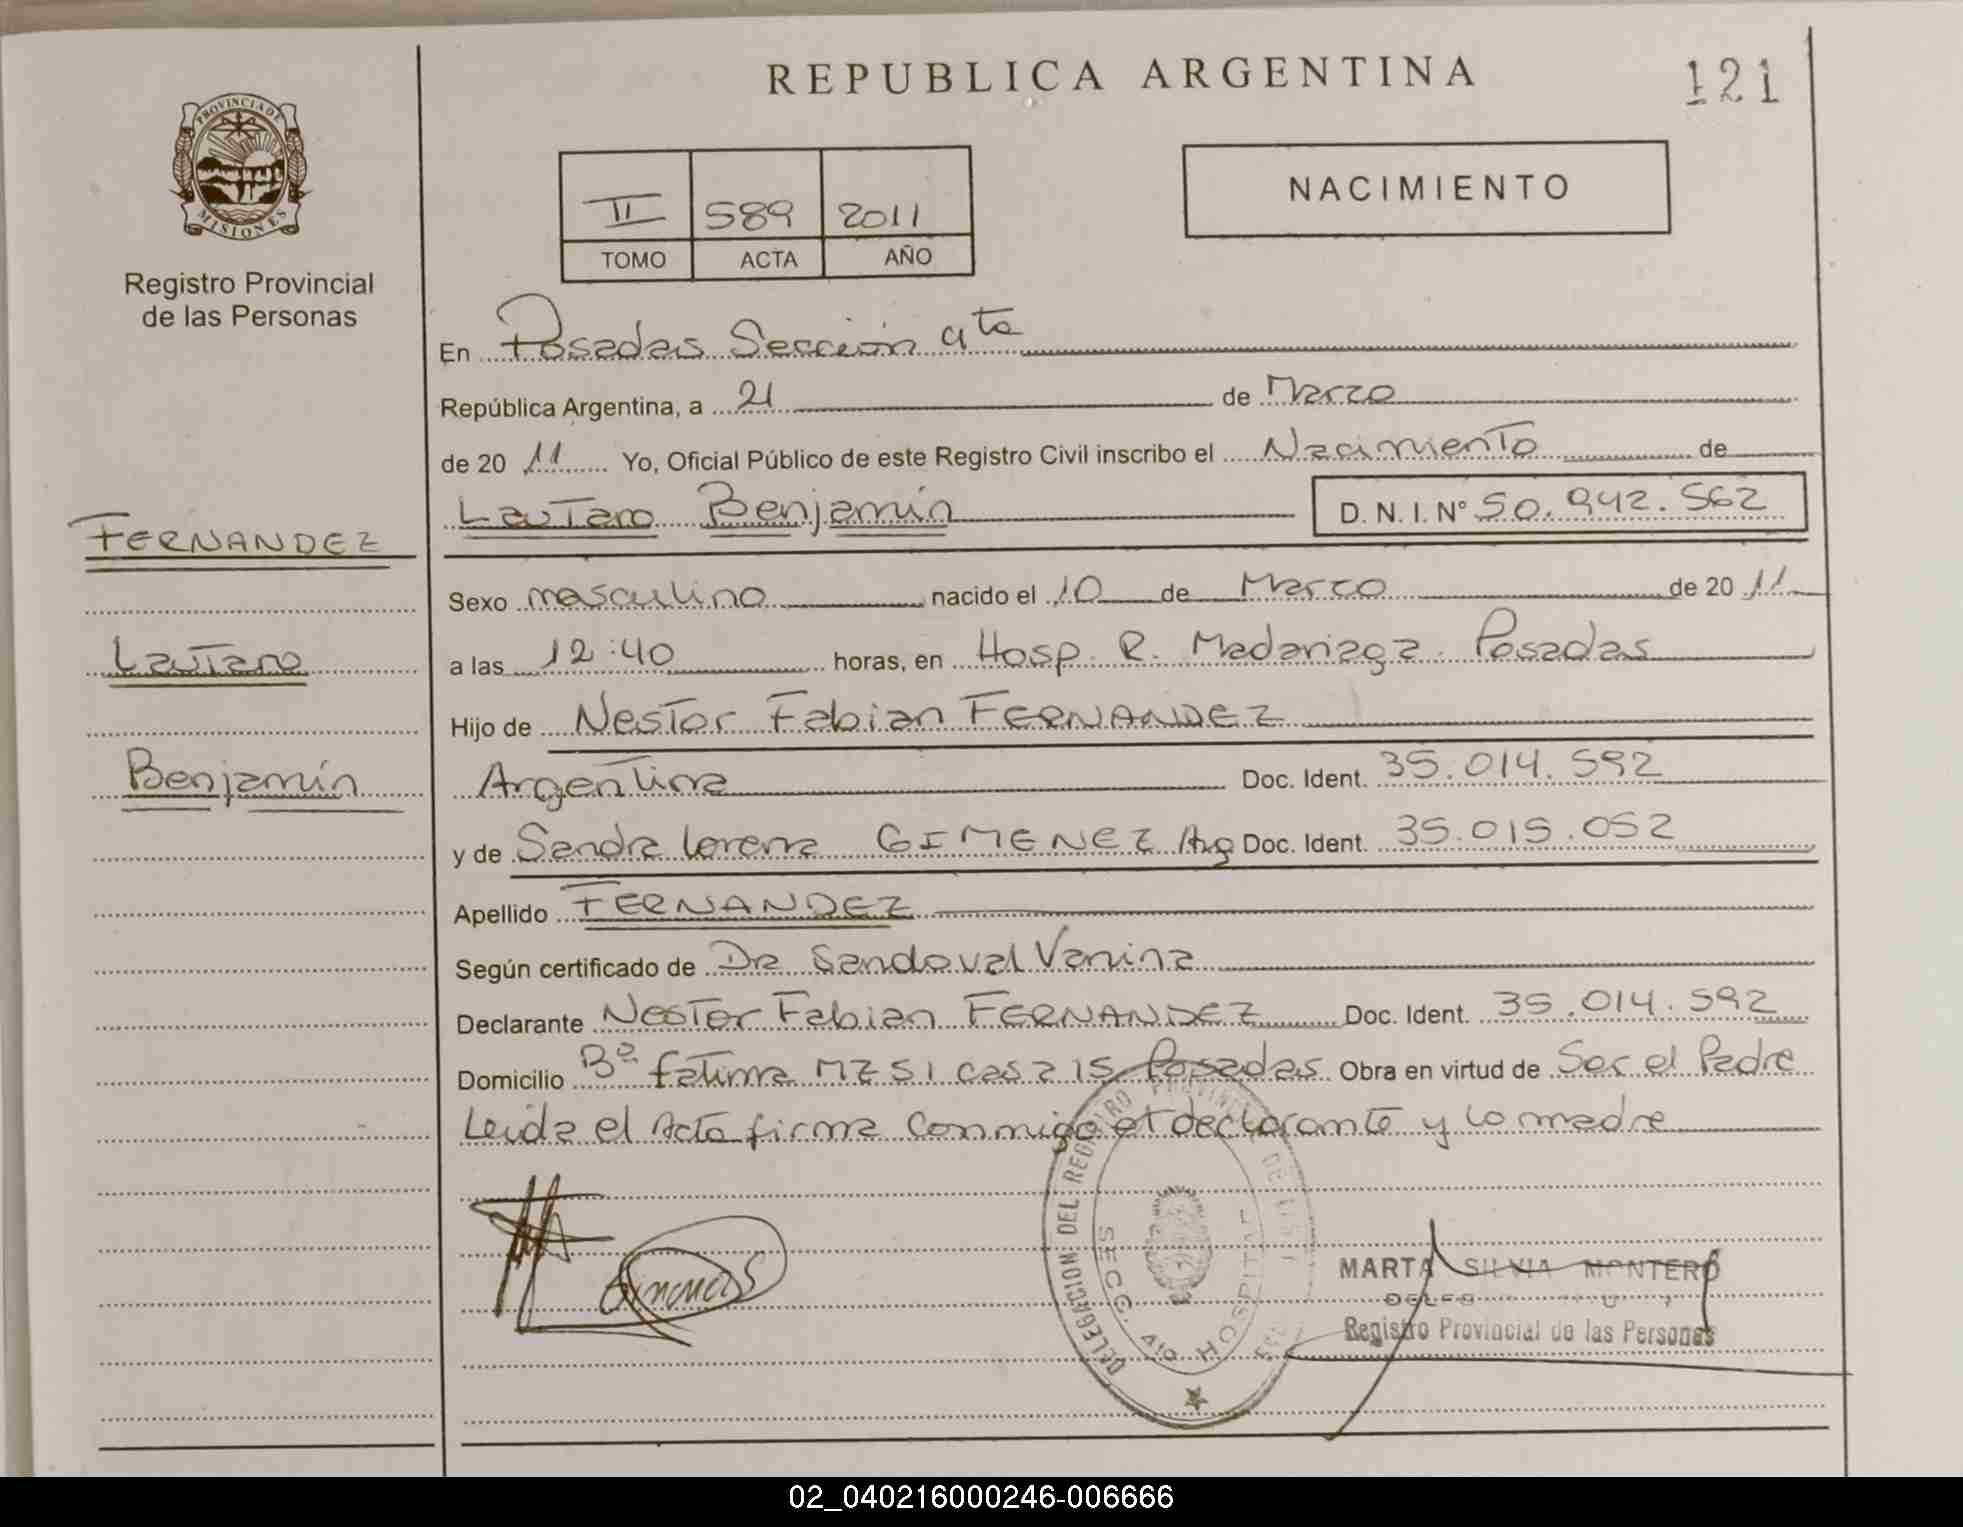 REPUBLICA ARGENTINA
121
PROVINCIA DE
MISIONES
Registro Provincial
de las Personas
II 589 2011
TOMO ACTA AÑO
NACIMIENTO
En Posadas Sección 4ta
República Argentina, a 21 de Marzo
de 20 11 Yo, Oficial Público de este Registro Civil inscribo el Nacimiento de
Lautaro Benjamín D. N. I. N° 50.942.562
FERNANDEZ
Sexo masculino nacido el 10 de Marzo de 20 11
Lautaro
a las 12:40 horas, en Hosp. R. Madariaga. Posadas
Hijo de Nestor Fabian FERNANDEZ
Benjamín
Argentina Doc. Ident. 35.014.592
y de Sandra Lorena GIMENEZ Arg Doc. Ident. 35.015.052
Apellido FERNANDEZ
Según certificado de Dra Sandoval Vanina
Declarante Nestor Fabian FERNANDEZ Doc. Ident. 35.014.592
Domicilio Bº Fatima MZ 51 casa 15 Posadas Obra en virtud de Ser el Padre
Leida el Acta firma conmigo el declarante y la madre
DELEGACION DEL REGISTRO PROVINCIAL DE LAS
SECC. 4ta HOSPITAL
MARTA SILVIA MONTERO
Registro Provincial de las Personas
02_040216000246-006666